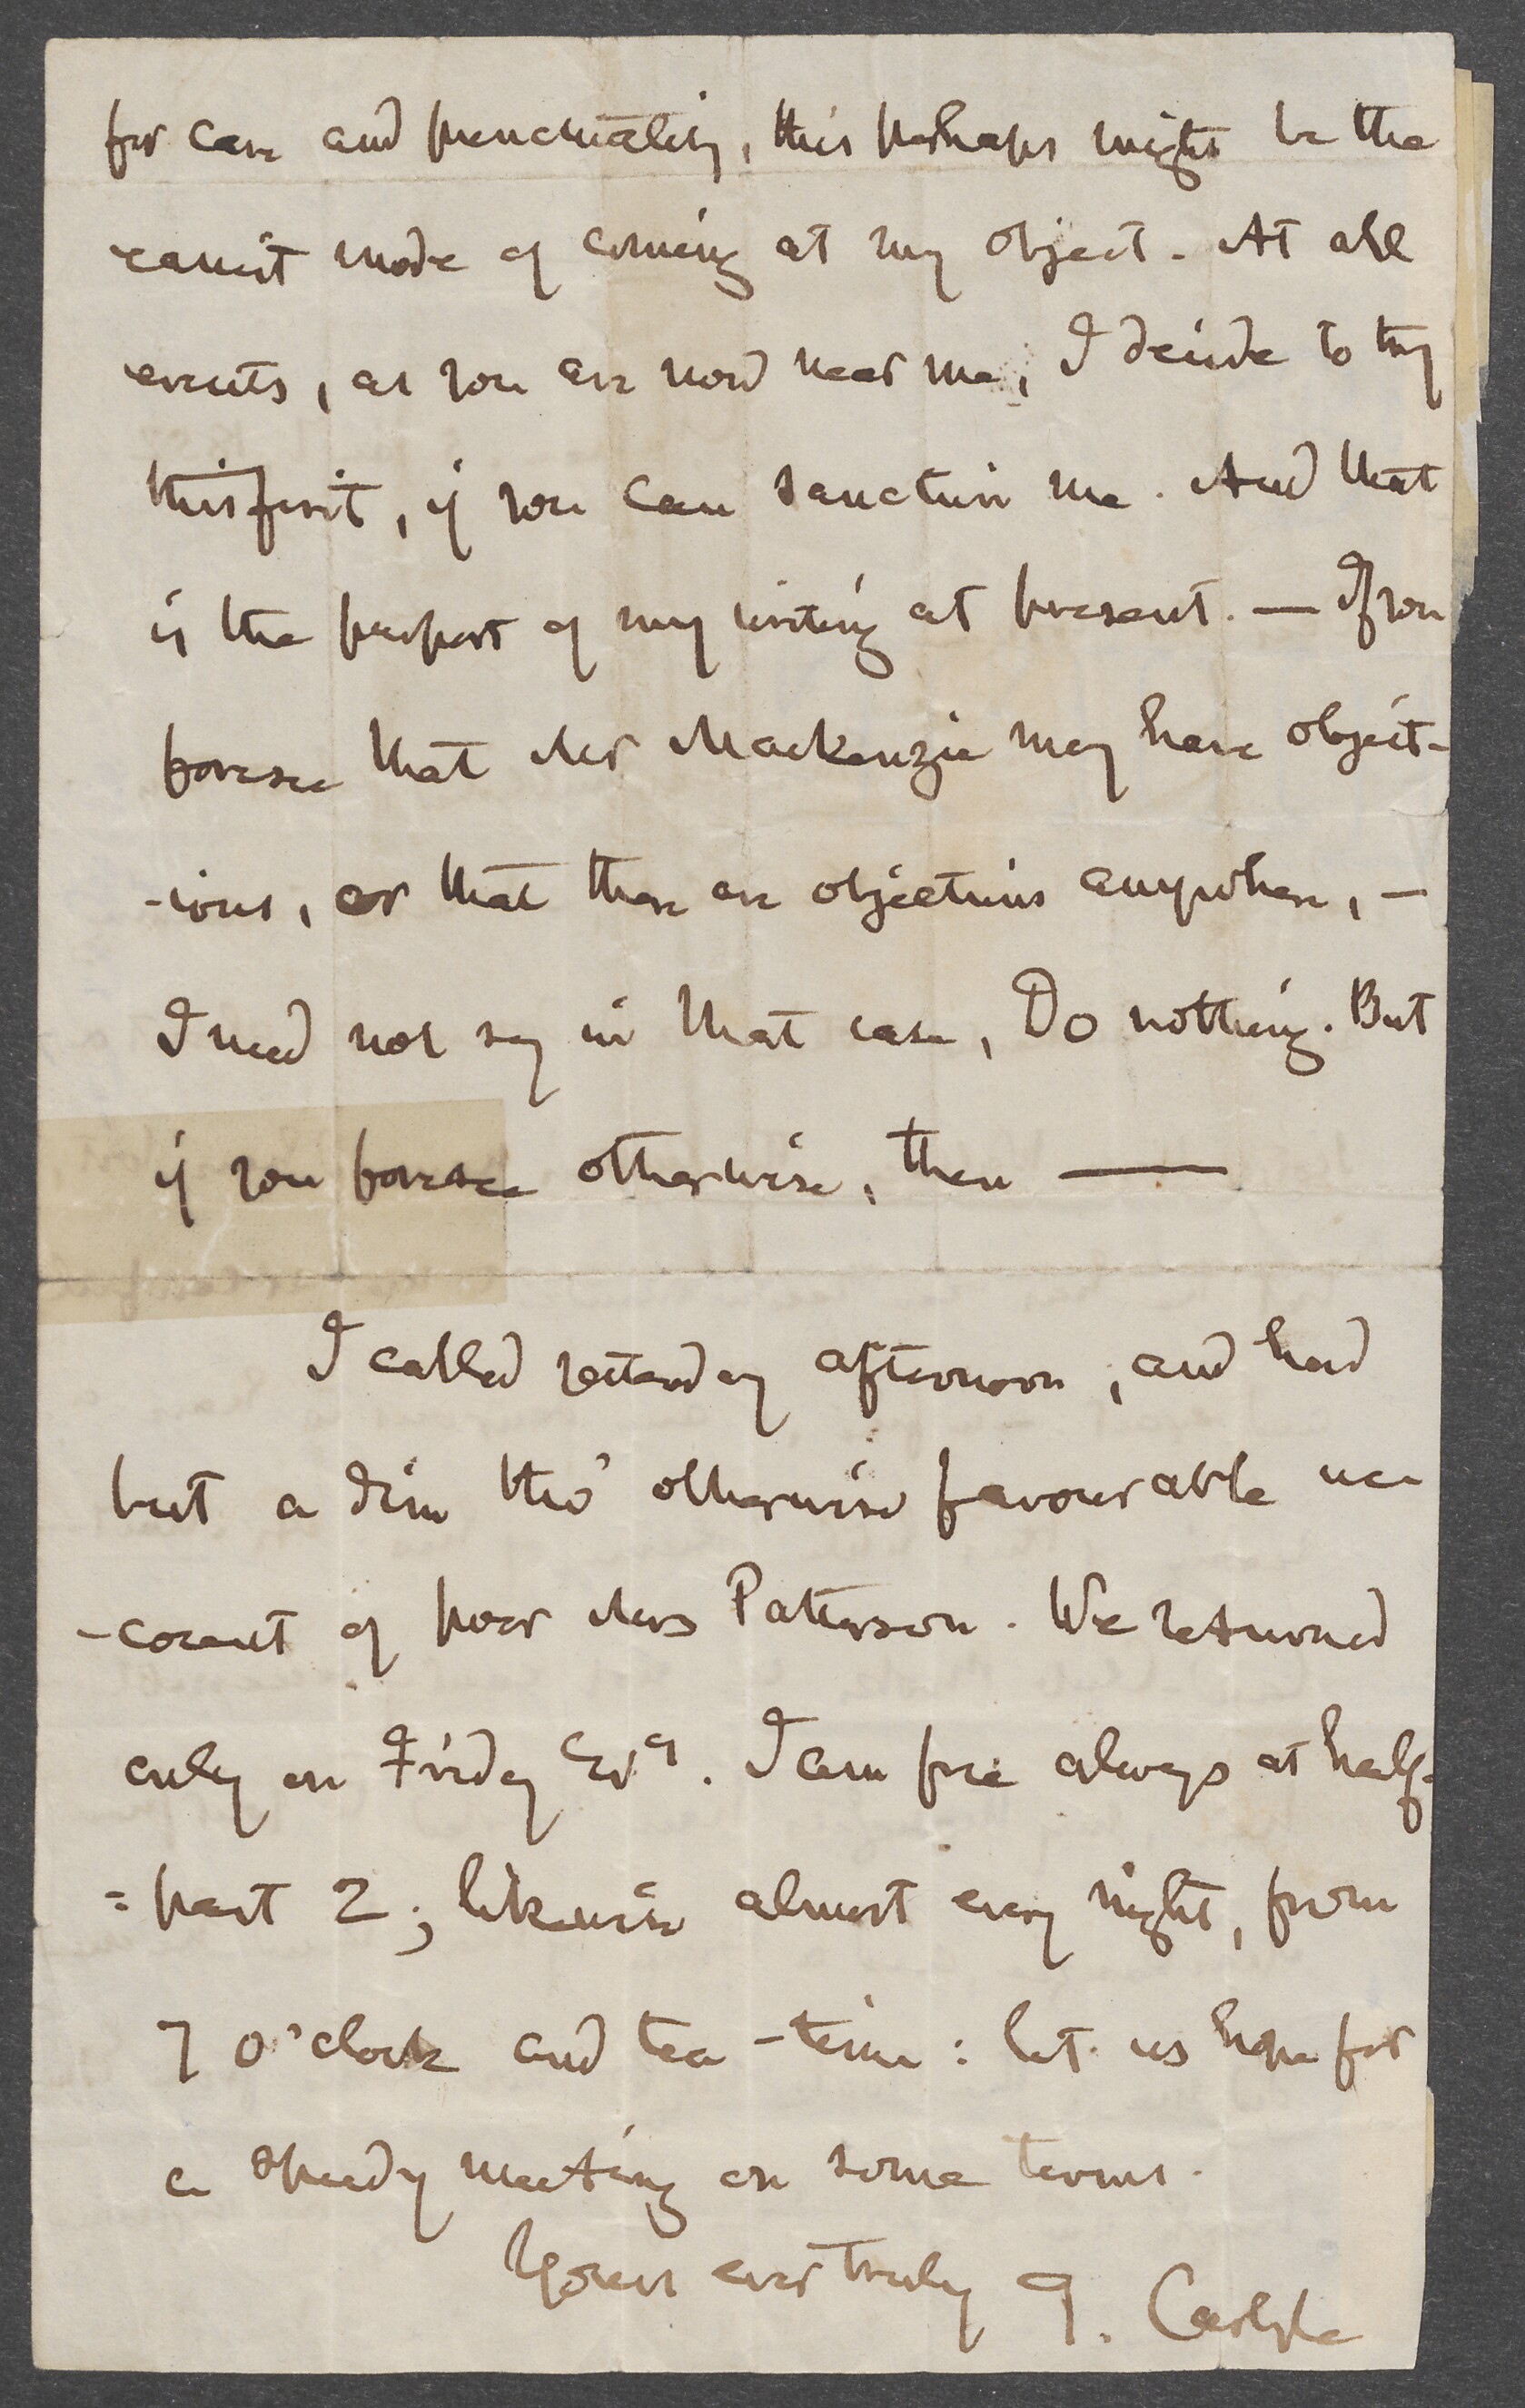 for care and punctuality, this perhaps might be the
easiest mode of coming at my object. At all
events, as you are now near me, I decide to try
this first, if you can sanction me. And that
is the purport of my writing at present. — If you
foresee that Mr Mackenzie may have object-
-ions, or that there are objections anywhere, —
I need not say in that case, Do nothing. But
if you foresee otherwise, then —
I called yesterday afternoon, and had
but a dim tho' otherwise favourable ac
-count of poor Mrs Patterson. We returned
only on Friday Evg. I am free always at half-
=past 2; likewise almost every night, from
7 o'clock and tea-time: let us hope for
a speedy meeting on some terms.
Yours ever truly T. Carlyle